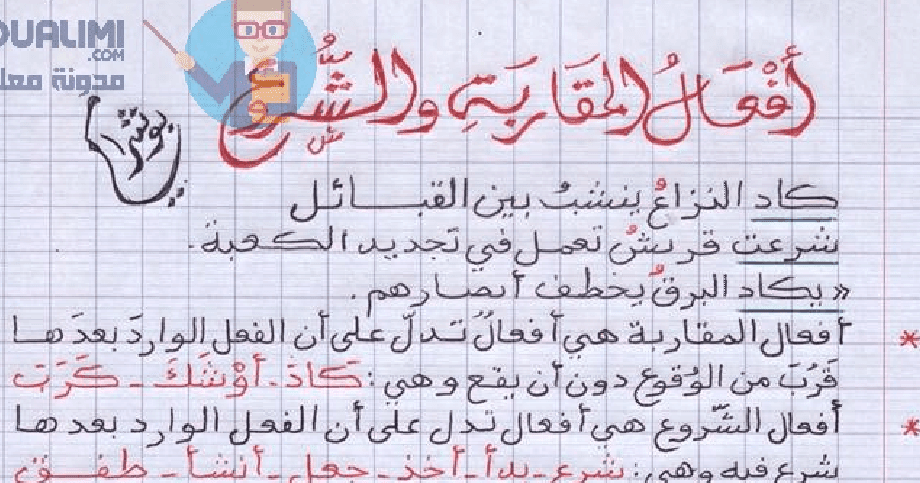 OUALIMI
.COM
مدونة معل
أَفْعَالُ المُقَارَبَةِ والشُّرُوعِ
كاد النزاعُ ينشبُ بين القبائل
شرعت قريشُ تعمل في تجديد الكعبة.
« يكاد البرقُ يخطف أبصارهم.
* أفعال المقاربة هي أفعالٌ تدلّ على أن الفعل الواردَ بعدَها
قَرُبَ من الوُقوع دون أن يقع وهي: كَادَ - أَوْشَكَ - كَرَبَ
* أفعال الشّروع هي أفعال تدل على أن الفعل الوارد بعدها
شرع فيه وهي: شرع - بدأ - أخذ - جعل - أنشأ - طفق